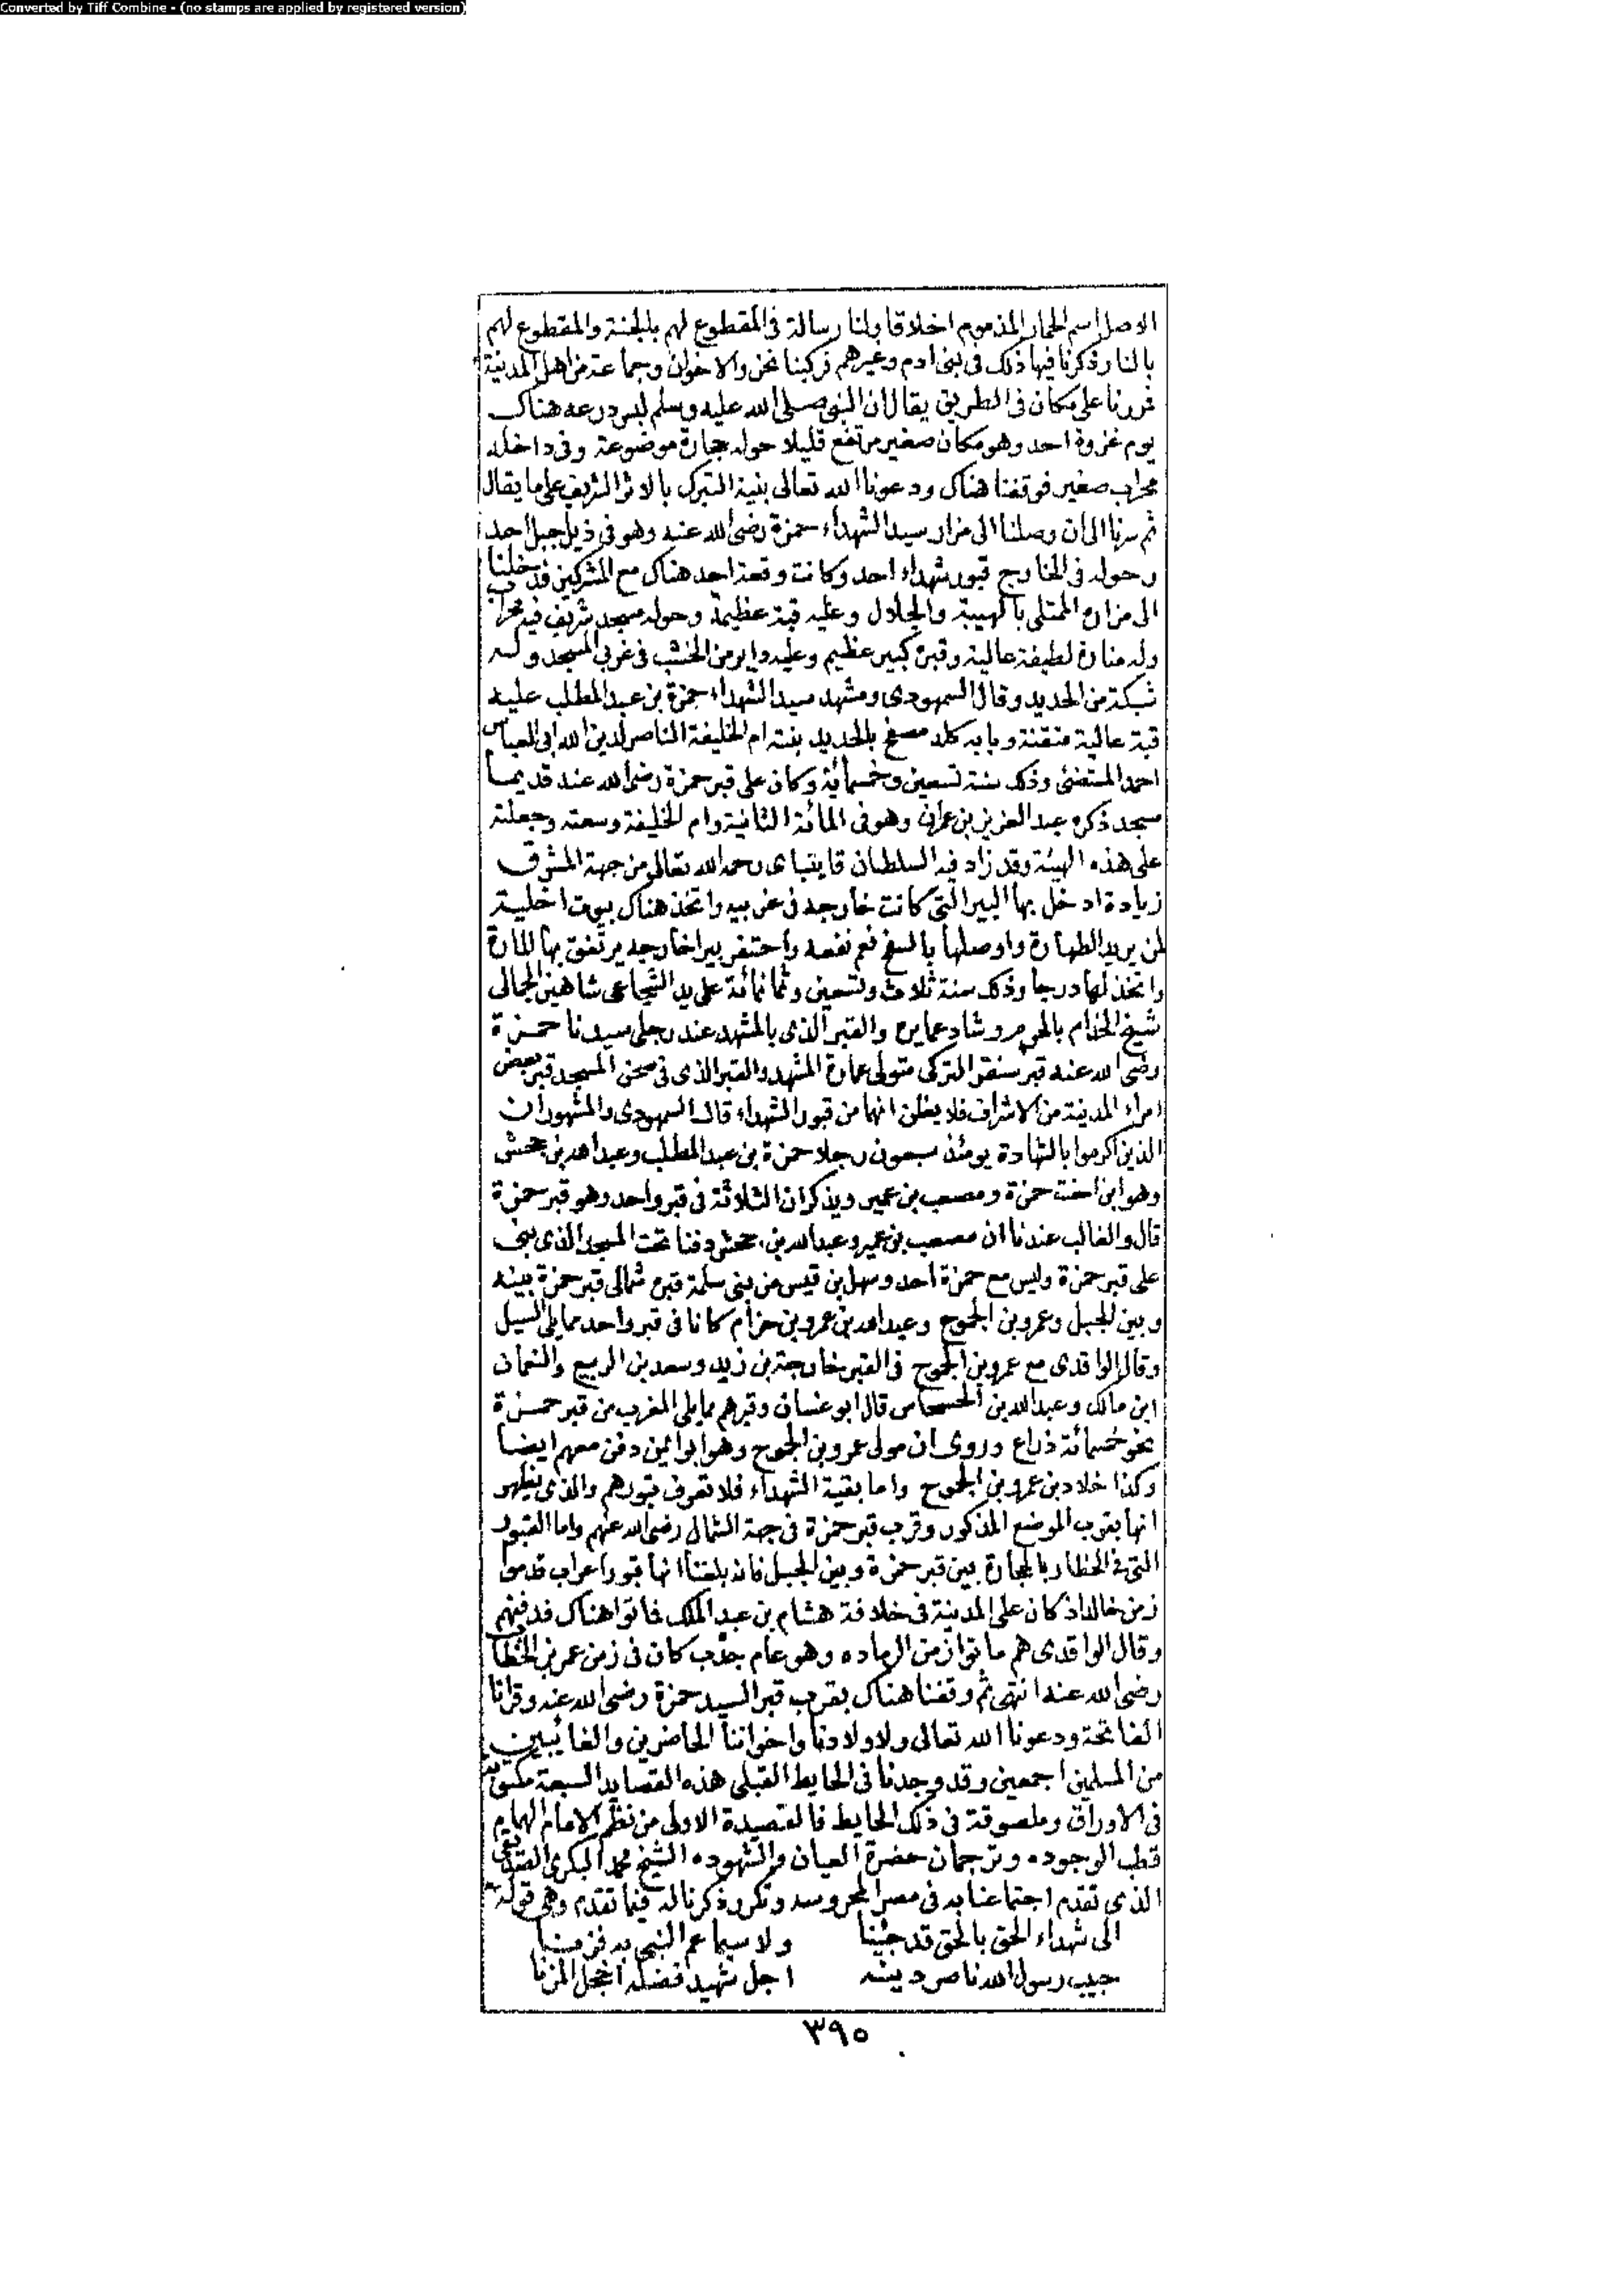 Converted by Tiff Combine - (no stamps are applied by registered version)
الاصل اسم الحمار المذموم اخلاقا ولنا رسالة فى المقطوع لهم بالجنة والمقطوع لهم
بالنار ذكرنا فيها ذلك فى بنى ادم وغيرهم فركبنا نحن والاخوان وجماعة من اهل المدينة
فمررنا على مكان فى الطريق يقال ان النبى صلى الله عليه وسلم لبس درعه هناك
يوم غزوة احد وهو مكان صغير مرتفع قليلا حوله حجارة موضوعة وفى داخله
محراب صغير فوقفنا هناك ودعونا الله تعالى بنية التبرك بالاثر الشريف على ما يقال
ثم سرنا الى ان وصلنا الى مزار سيد الشهداء حمزة رضى الله عنه وهو فى ذيل جبل احد
وحوله فى الخارج قبور شهداء احد وكانت وقعة احد هناك مع المشركين فدخلنا
الى مزاره الممتلى بالهيبة والجلال وعليه قبة عظيمة وحوله مسجد شريف فيه محراب
وله منارة لطيفة عالية وقبره كبير عظيم وعليه داير من الخشب فى غربى المسجد وله
شبكة من الحديد وقال السمهودى ومشهد سيد الشهداء حمزة بن عبد المطلب عليه
قبة عالية متقنة وبابه كله مصفح بالحديد بنته ام الخليفة الناصر لدين الله ابى العباس
احمد المستضئ وذلك سنة تسعين وخمسماية وكان على قبر حمزة رضى الله عنه قديما
مسجد ذكره عبد العزيز بن عمران وهو فى المائة الثانية وام الخليفة وسعته وجعلته
على هذه الهيئة وقد زاد فيه السلطان قايتباى رحمه الله تعالى من جهة المشرق
زيادة ادخل بها البير التى كانت خارجه فى غربيه واتخذ هناك بيوت اخلية
لمن يريد الطهارة واوصلها بالسفح فعم نفعه واحتفر بيرا خارجه يرتفق بها المارة
واتخذ لها درجا وذلك سنة ثلاث وتسعين وثمانمائة على يد الشجاعى شاهين الجمالى
شيخ الخدام بالحرم وشاد عمايره والقبر الذى بالمشهد عند رجلى سيدنا حمزة
رضى الله عنه قبر سنقر التركى متولى عمارة المشهد والقبر الذى فى صحن المسجد قبر بعض
امراء المدينة من الاشراف فلا يظن انهما من قبور الشهداء قال السمهودى والمشهور ان
الذين اكرموا بالشهادة يومئذ سبعون رجلا حمزة بن عبد المطلب وعبد الله بن جحش
وهو ابن اخت حمزة ومصعب بن عمير ويذكر ان الثلاثة فى قبر واحد وهو قبر حمزة
قال والغالب عندنا ان مصعب بن عمير وعبد الله بن جحش دفنا تحت المسجد الذى بنى
على قبر حمزة وليس مع حمزة احد وسهل بن قيس من بنى سلمة قبره شمالى قبر حمزة بينه
وبين الجبل وعمرو بن الجموح وعبد الله بن عمرو بن حزام كانا فى قبر واحد مما يلى السيل
وقال الواقدى مع عمرو بن الجموح فى القبر خارجة بن زيد وسعد بن الربيع والنعمان
ابن مالك وعبد الله بن الحسحاس قال ابو غسان وقبرهم مما يلى المغرب من قبر حمزة
نحو خمسمائة ذراع وروى ان مولى عمرو بن الجموح وهو ابو ايمن دفن معهم ايضا
وكذا خلاد بن عمرو بن الجموح واما بقية الشهداء فلا تعرف قبورهم والذى يظهر
انها بقرب الموضع المذكور وقرب قبر حمزة فى جهة الشمال رضى الله عنهم واما القبور
التى فى الحظار بالحجارة بين قبر حمزة وبين الجبل فانه بلغنا انها قبور اعراب قدموا
زمن خالد اذ كان على المدينة فى خلافة هشام بن عبد الملك فماتوا هناك فدفنهم
وقال الواقدى هم ماتوا زمن الرماده وهو عام جدب كان فى زمن عمر بن الخطاب
رضى الله عنه انتهى ثم وقفنا هناك بقرب قبر السيد حمزة رضى الله عنه وقرانا
الفاتحة ودعونا الله تعالى ولاولادنا واخواننا الحاضرين والغايبين
من المسلمين اجمعين وقد وجدنا فى الحايط القبلى هذه القصايد السبعة مكتوبة
فى الاوراق وملصوقة فى ذلك الحايط فالقصيدة الاولى من نظم الامام الهمام
قطب الوجود ه وترجمان حضرة العيان والشهود ه الشيخ محمد البكرى الصديقى
الذى تقدم اجتماعنا به فى مصر المحروسه وتكرر ذكرنا له فيما تقدم وهى قوله
الى شهداء الحق بالحق قد جئنا ولا سيما عم النبى به فزنا
حبيب رسول الله ناصر دينه اجل شهيد فضله اخجل المزنا
٣٩٥